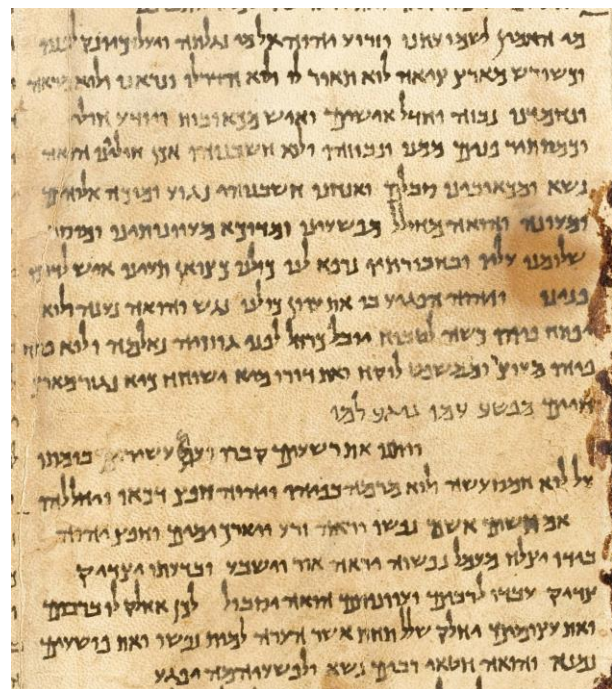 מי האמין לשמועתנו וזרוע יהוה אל מי נגלתה ויעל כיונק לפניו
וכשורש מארץ ציאה לוא תואר לו ולוא הדר לו ונראנו ולוא מראה
ונחמדנו נבזה וחדל אישים ואיש מכאובות ויודע חולי
וכמסתיר פנים ממנו ונבוזהו ולוא חשבנוהו אכן חוליינו הואה
נשא ומכאובינו סבלם ואנחנו חשבנוהו נגוע ומוכה אלוהים
ומעונה והואה מחולל מפשעינו ומדוכא מעוונותינו ומוסר
שלומנו עליו ובחבורתיו נרפא לנו כולנו כצואן תעינו איש לדרכו
פנינו ויהוה הפגיע בו את עוון כולנו נגש והואה נענה ולוא
יפתח פיהו כשה לטבוח יובל כרחל לפני גוזזיה נאלמה ולוא פתח
פיהו מעוצר וממשפט לוקח ואת דורו מיא ישוחח כיא נגזר מארץ
חיים מפשע עמו נוגע למו
ויתנו את רשעים קברו ועם בומתו
על לוא חמס עשה ולוא מרמה בפיהו ויהוה חפץ דכאו ויחללהו
אם תשים אשם נפשו יראה זרע ויארך ימים וחפץ יהוה
בידו יצלח מעמל נפשוה יראה אור וישבע ובדעתו יצדיק
צדיק עבדו לרבים ועוונותם הואה יסבול לכן אחלק לו ברבים
ואת עצומים יחלק שלל תחת אשר הערה למות נפשו ואת פושעים
נמנה והואה חטאי רבים נשא ולפשעיהמה יפגע